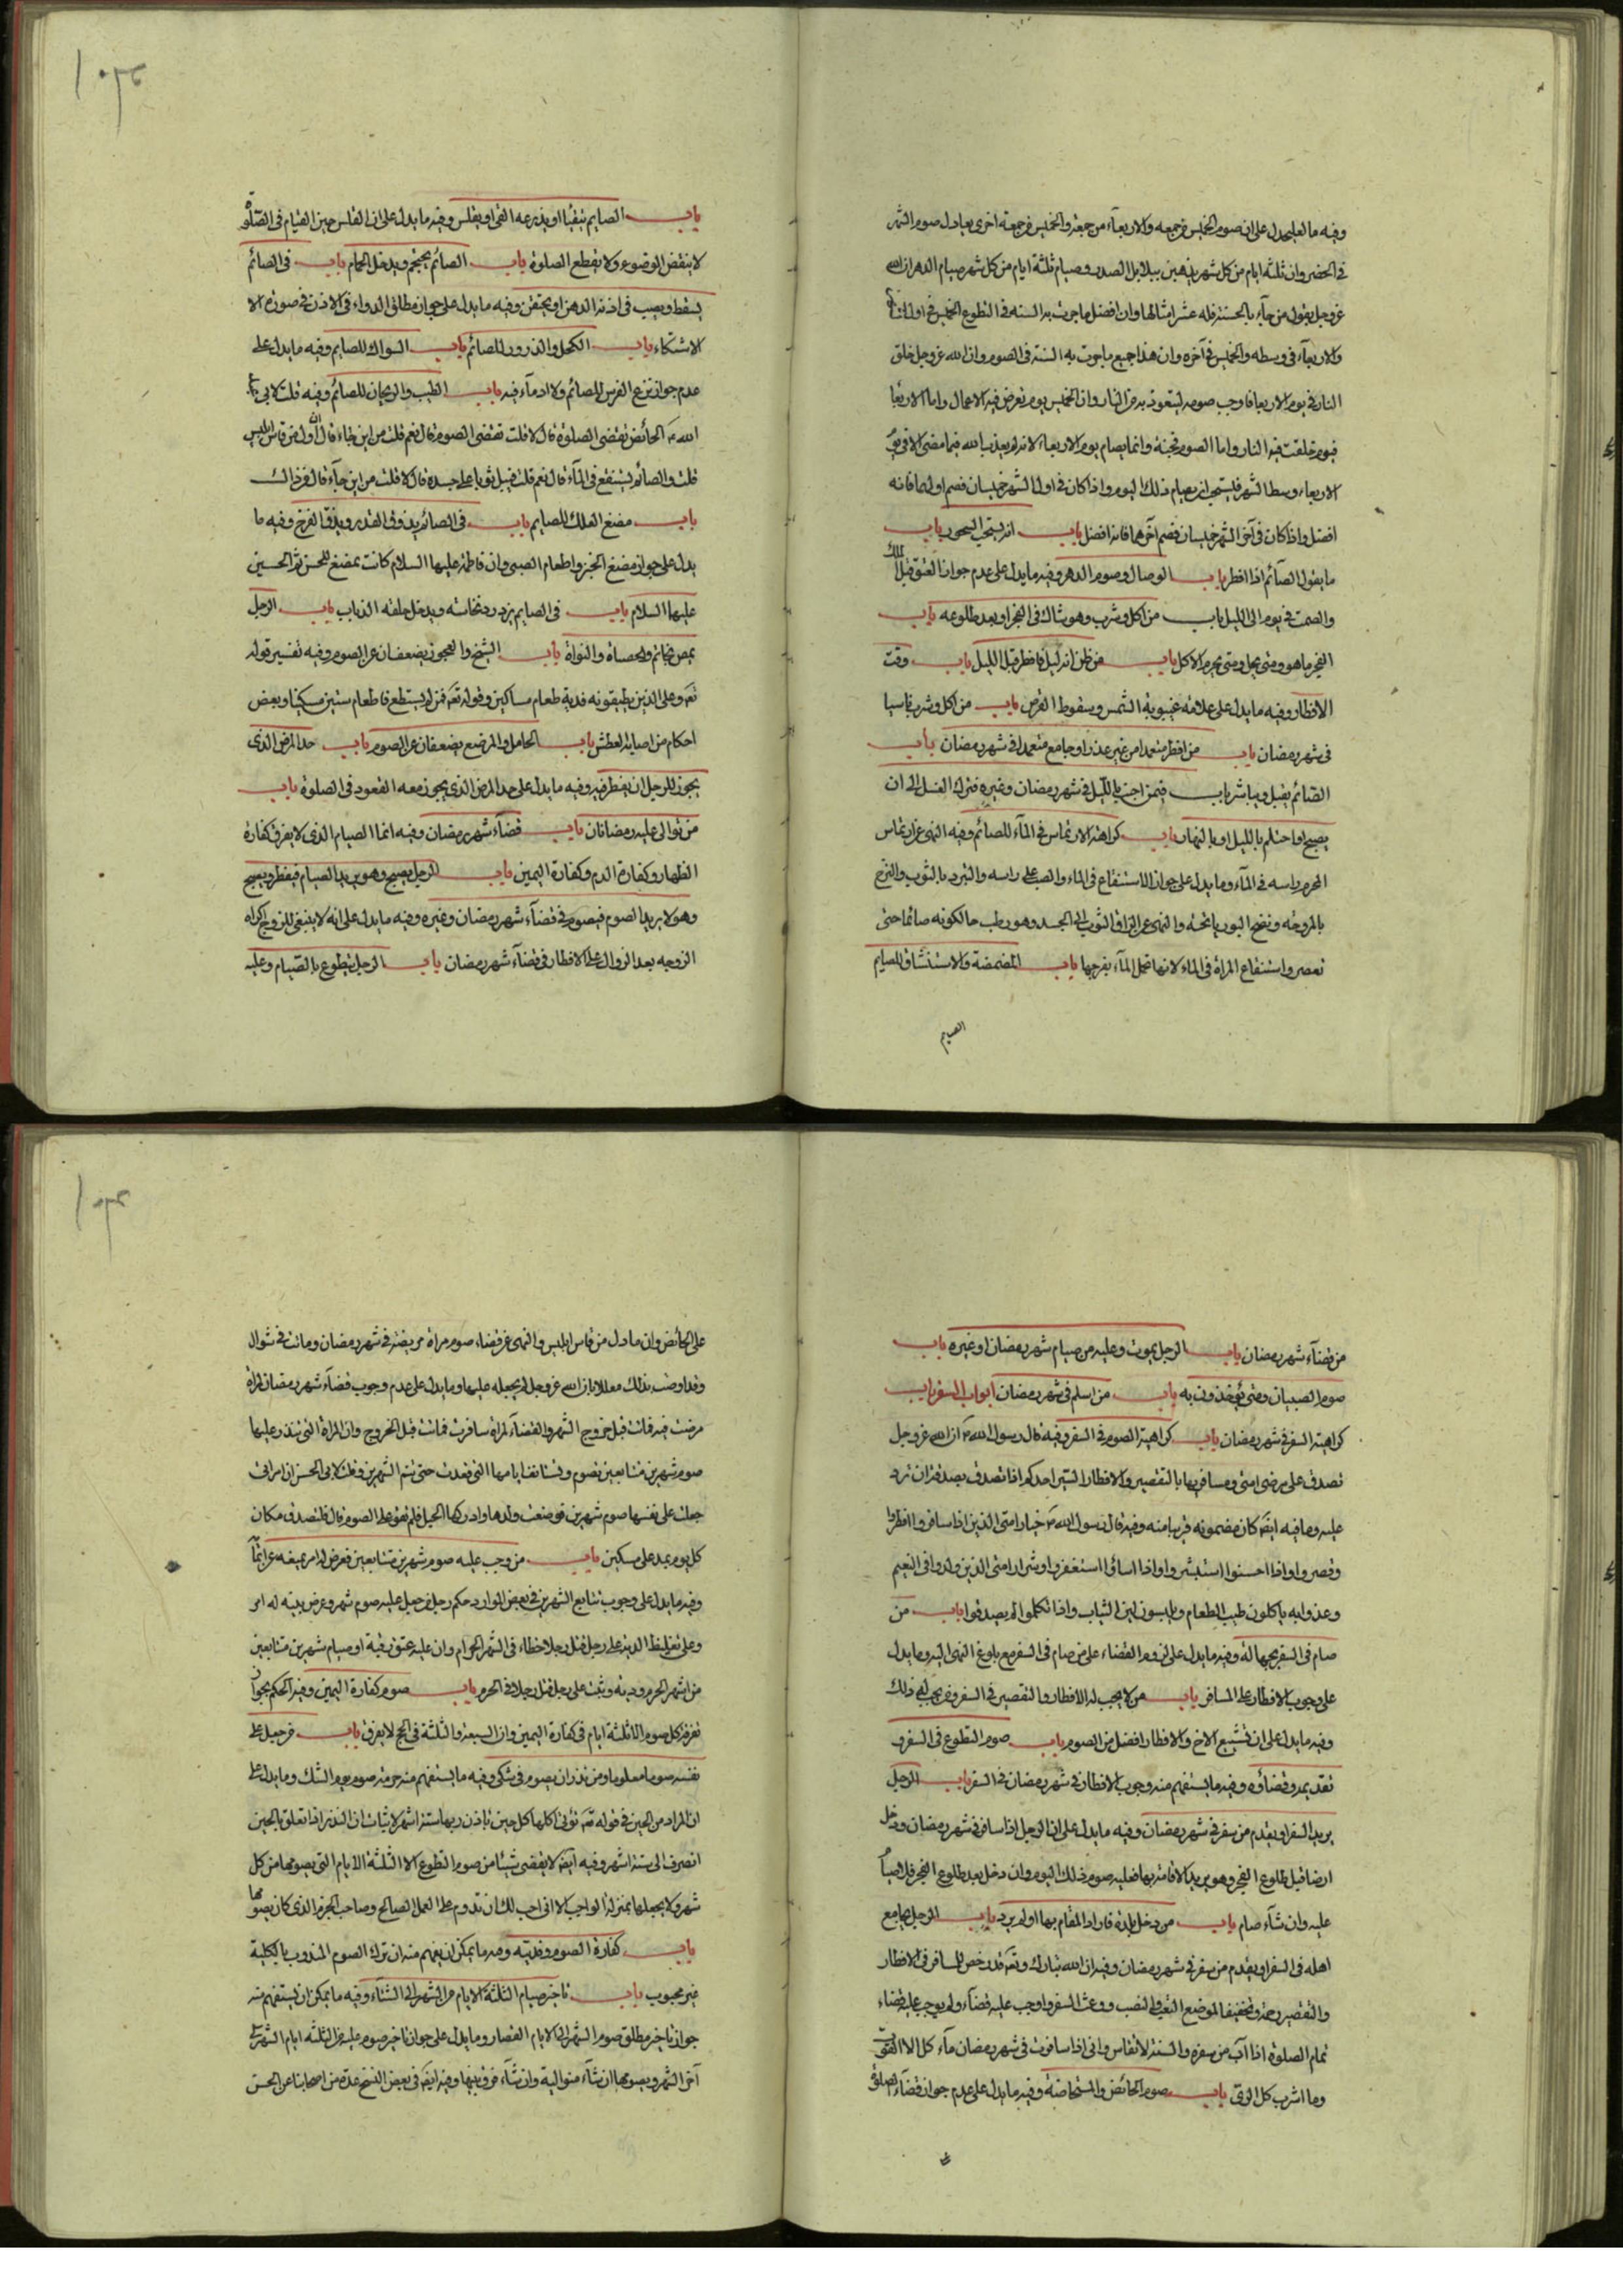 وفيه ما لعله يدل على ان صوم الخميس من جمعه والاربعاء من جمعة والخميس من جمعة اخرى يعادل صوم الشهر
في الحضر وان ثلثه ايام من كل شهر يذهبن ببلابل الصدر وصيام ثلثة ايام من كل شهر صيام الدهر ان الله
عز وجل يقول من جاء بالحسنة فله عشر امثالها وان افضل ما جرت به السنه في التطوع الخميس في اول
والاربعاء في وسطه والخميس في آخره وان هذا جميع ما جرت به السنة في الصوم وان الله عز وجل خلق
النار في يوم الاربعا فاوجب صومه ليتعوذ به من النار وان الخميس يوم تعرض فيه الاعمال واما الاربعا
فيوم خلقت فيه النار واما الصوم فجنة وانما يصام يوم الاربعاء لانه لم يعذب الله فيما مضى الا في يوم
الاربعاء وسط الشهر فيستحب ان يصام ذلك اليوم واذا كان في اول الشهر خميسان فصم اولهما فانه
افضل واذا كان في آخر الشهر خميسان فصم آخرهما فانه افضل باب انه يستحب السحور باب
ما يقول الصائم اذا افطر باب الوصال وصوم الدهر وفيه ما يدل على عدم جواز العتق قبل الملك
والصمت في يوم الى الليل باب من اكل وشرب وهو شاك في الفجر او بعد طلوعه باب
الفجر ما هو ومتى يحل ومتى يحرم الاكل باب من ظن انه ليل فافطر قبل الليل باب وقت
الافطار وفيه ما يدل على علامة غيبوبة الشمس وسقوط القرص باب من اكل وشرب ناسيا
في شهر رمضان باب من افطر متعمدا من غير عذر او جامع متعمدا في شهر رمضان باب
الصائم يقبل ويباشر باب فيمن اجنب بالليل في شهر رمضان وغيره فترك الغسل الى ان
يصبح او احتلم بالليل او بالنهار باب كراهة الارتماس في الماء للصائم وفيه النهى عن ارتماس
المحرم راسه في الماء وما يدل على جواز الاستنقاع في الماء والصب على راسه والتبرد بالثوب والنضح
بالمروحة ونضح البوريا تحته والنهى عن الزاق الثوب الى الجسد وهو رطب حالكونه صائما حتى
تعصر واستنقاع المراة في الماء لانها تحمل الماء بفرجها باب المضمضة والاستنشاق للصايم
الصيام
باب الصايم يتقيا او يذرعه القئ او يقلس وفيه ما يدل على ان القلس حين القيام في الصلوة
لا ينقض الوضوء ولا يقطع الصلوة باب الصائم يحتجم ويدخل الحمام باب في الصائم
يسعط ويصب في اذنه الدهن او يحتقن وفيه ما يدل على جواز مطلق الدواء في الاذن في صورة الا
الاشتكاء باب الكحل والذرور للصائم باب السواك للصايم وفيه ما يدل على
عدم جواز نزع الضرس للصائم ولا ادماء فيه باب الطيب والريحان للصائم وفيه قلت لابي عبد
الله ع الحائض تقضى الصلوة قال لا قلت تقضى الصوم قال نعم قلت من اين جاء قال ان اول من قاس ابليس
قلت والصائم يستنقع في الماء قال نعم قلت فيبل ثوبا على جسده قال لا قلت من اين جاء قال من ذاك
باب مضغ العلك للصايم باب في الصائم يذوق القدر ويزق الفرخ وفيه ما
يدل على جواز مضغ الخبز واطعام الصبى وان فاطمة عليها السلام كانت تمضغ للحسن ثم الحسين
عليهما السلام باب في الصايم يزدرد نخامته ويدخل حلقه الذباب باب الرجل
يمص الخاتم والحصاة والنواة باب الشيخ والعجوز يضعفان عن الصوم وفيه تفسير قوله
تعه وعلى الذين يطيقونه فدية طعام مساكين وقوله تعه فمن لم يستطع فاطعام ستين مسكينا وبعض
احكام من اصابه العطش باب الحامل والمرضع يضعفان عن الصوم باب حد المرض الذى
يجوز للرجل ان يفطر فيه وفيه ما يدل على حد المرض الذى يجوز معه القعود في الصلوة باب
من توالى عليه رمضانان باب قضاء شهر رمضان وفيه انما الصيام الذى لا يفرق كفارة
الظهار وكفارة الدم وكفارة اليمين باب الرجل يصبح وهو يريد الصيام فيفطر ويصبح
وهو لا يريد الصوم فيصوم في قضاء شهر رمضان وغيره وفيه ما يدل على انه لا ينبغى للزوج اكراه
الزوجه بعد الزوال على الافطار في قضاء شهر رمضان باب الرجل يتطوع بالصيام وعليه
من قضاء شهر رمضان باب الرجل يموت وعليه من صيام شهر رمضان او غيره باب
صوم الصبيان ومتى يؤخذون به باب من اسلم في شهر رمضان ابواب السفر باب
كراهية السفر في شهر رمضان باب كراهية الصوم في السفر وفيه قال رسول الله ص ان الله عز وجل
تصدق على مرضى امتى ومسافريها بالتقصير والافطار ايسر احدكم اذا تصدق بصدقة ان ترد
عليه وما فيه ايضا كان مضمونه قريبا منه وفيه قال رسول الله ص خيار امتى الذين اذا سافروا افطروا
وقصروا واذا احسنوا استبشروا واذا اساؤا استغفروا وشرار امتى الذين ولدوا في النعيم
وغذوا به ياكلون طيب الطعام ويلبسون لين الثياب واذا تكلموا لم يصدقوا باب من
صام في السفر بجهالة وفيه ما يدل على لزوم القضاء على من صام في السفر مع بلوغ النهى اليه وما يدل
على وجوب الافطار على المسافر باب من لا يجب له الافطار والتقصير في السفر ومن يجب له ذلك
وفيه ما يدل على ان تشييع الاخ والافطار افضل من الصوم باب صوم التطوع في السفر و
تقديمه وقضاؤه وفيه ما يستفهم منه وجوب الافطار في شهر رمضان في السفر باب الرجل
يريد السفر او يقدم من سفر في شهر رمضان وفيه ما يدل على ان الرجل اذا سافر في شهر رمضان ودخل
ارضا قبل طلوع الفجر وهو يريد الاقامة بها فعليه صوم ذلك اليوم وان دخل بعد طلوع الفجر فلا صيام
عليه وان شاء صام باب من دخل بلدة فاراد المقام بها او لم يرد باب الرجل يجامع
اهله في السفر او يقدم من سفر في شهر رمضان وفيه ان الله تبارك وتعه قد رخص للمسافر في الافطار
والتقصير رحمة وتخفيفا لموضع التعب والنصب ووعث السفر واوجب عليه قضاء ولم يوجب عليه قضاء
تمام الصلوة اذا آب من سفره والسنة لا تقاس وانى اذا سافرت في شهر رمضان ما آكل الا القوت
وما اشرب كل الرى باب صوم الحائض والمستحاضة وفيه ما يدل على عدم جواز قضاء الصلوة
على الحائض وان ما دل من قاس ابليس والنهى عن قضاء صوم مراة مريضة في شهر رمضان وماتت في شوال
وقد اوصت بذلك معللا بان الله عز وجل لم يجعله عليها وما يدل على عدم وجوب قضاء شهر رمضان لامراة
مرضت فيه فماتت قبل خروج الشهر والقضاء لامراة سافرت فماتت قبل الخروج وان المراة التى تنذر عليها
صوم شهرين متتابعين تصوم وتستانف ايامها التى قعدت حتى تتم الشهرين وقلت لابى الحسن ان امراتى
جعلت على نفسها صوم شهرين فوضعت ولدها وادركها الحبل فلم تقو على الصوم قال فلتصدق مكان
كل يوم بمد على مسكين باب من وجب عليه صوم شهرين متتابعين فعرض له امر يمنعه عن اتمامه
وفيه ما يدل على وجوب تتابع الشهرين في بعض الموارد حكم رجل جعل عليه صوم شهر وعرض بينه له امر
وعلى تغليظ الدية على رجل قتل رجلا خطاء في الشهر الحرام وان عليه عتق رقبة او صيام شهرين متتابعين
من اشهر الحرم ودية وثلث على رجل قتل رجلا في الحرم باب صوم كفارة اليمين وفيه الحكم بجواز
تفرقة كل صوم الا ثلثة ايام في كفارة اليمين وان السبعة والثلثة في الحج لا يفرق باب من جعل على
نفسه صوما معلوما ومن نذر ان يصوم في شكر وفيه ما يستفهم منه حرمة صوم يوم الشك وما يدل على
ان المراد من الحين في قوله تعه تؤتى اكلها كل حين باذن ربها ستة اشهر لاثبات ان النذر اذا تعلق بالحين
انصرف الى ستة اشهر وفيه ايضا لا يقضى شيئا من صوم التطوع الا الثلثة الايام التى يصومها من كل
شهر ولا يجعلها بمنزلة الواجب الا انى احب لك ان تدوم على العمل الصالح وصاحب الحرم الذى كان يصومها
باب كفارة الصوم وفديته وفيه ما يمكن ان يفهم منه ان ترك الصوم المندوب بالكلية
غير محبوب باب تاخير صيام الثلثة الايام من الشهر الى الشتاء وفيه ما يمكن ان يستفهم منه
جواز تاخير مطلق صوم الشهر الى الايام القصار وما يدل على جواز تاخير صوم عليه من الثلثة ايام الشهر الى
آخر الشهر ويصومها ان شاء متوالية وان شاء فرق بينها وفيه ايضا في بعض النسخ عدة من اصحابنا عن الحسن